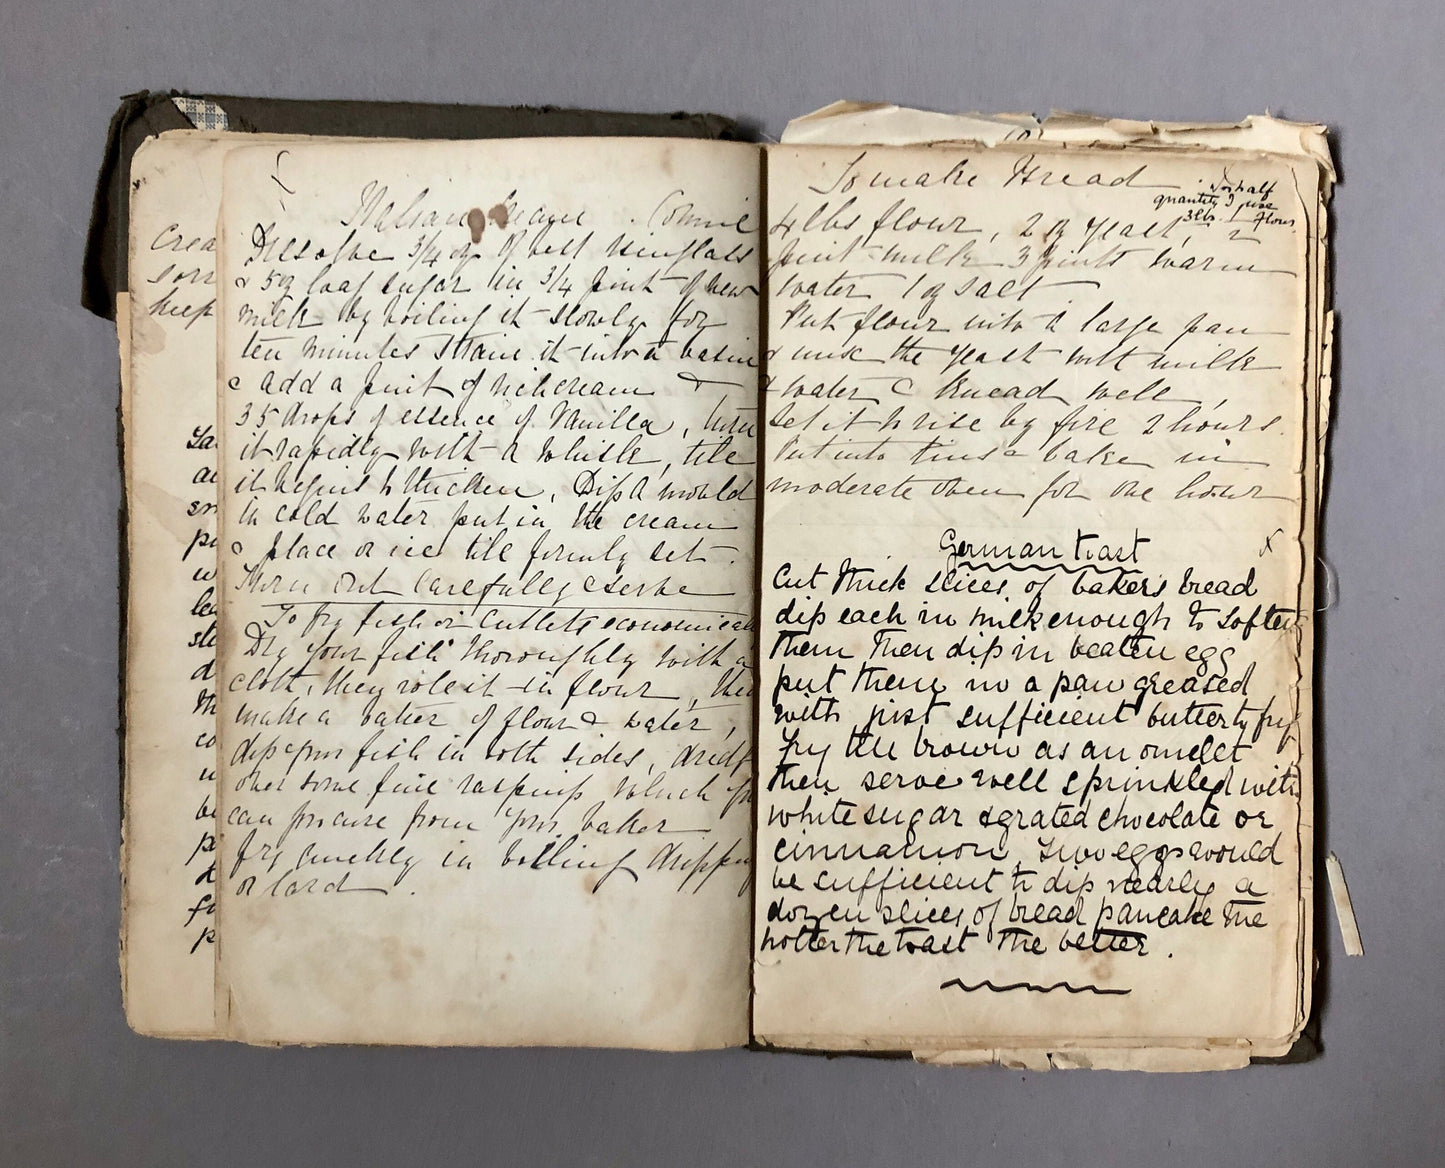 Crea
sorr
keep
Italian Cream . Connie
Dissolve 3/4 oz of best Isinglass
& 5 oz loaf sugar in 3/4 pint of new
milk by boiling it slowly for
ten minutes Strain it into a basin
& add a pint of rich cream &
35 drops of essence of Vanilla,
it rapidly with a whisk, till
it begins to thicken, Dip a mould
in cold water put in the cream
& place on ice till firmly set.
Turn out carefully & serve
To fry fish or Cutlets economical
Dry your fish thoroughly with a
cloth, then role it in flour, then
make a batter of flour & water,
dip your fish in both sides,
over some fine raspings which you
can procure from your baker
fry quickly in boiling dripping
or lard.
To make Bread
For half
quantity I use
3 lbs. flour
4 lbs flour, 2 oz yeast, 1/2
pint milk 3 pints warm
water 1 oz salt.
Put flour into a large pan
& mix the yeast with milk
& water & knead well,
set it to rise by fire 2 hours.
Put into tins & bake in
moderate oven for one hour
German toast x
Cut thick slices of baker's bread
dip each in milk enough to soften
them Then dip in beaten egg
put them in a pan greased
with just sufficient butter to fry
fry till brown as an omelet
then serve well sprinkled with
white sugar & grated chocolate or
cinnamon, Two eggs would
be sufficient to dip nearly a
dozen slices of bread pancake the
hotter the toast the better.